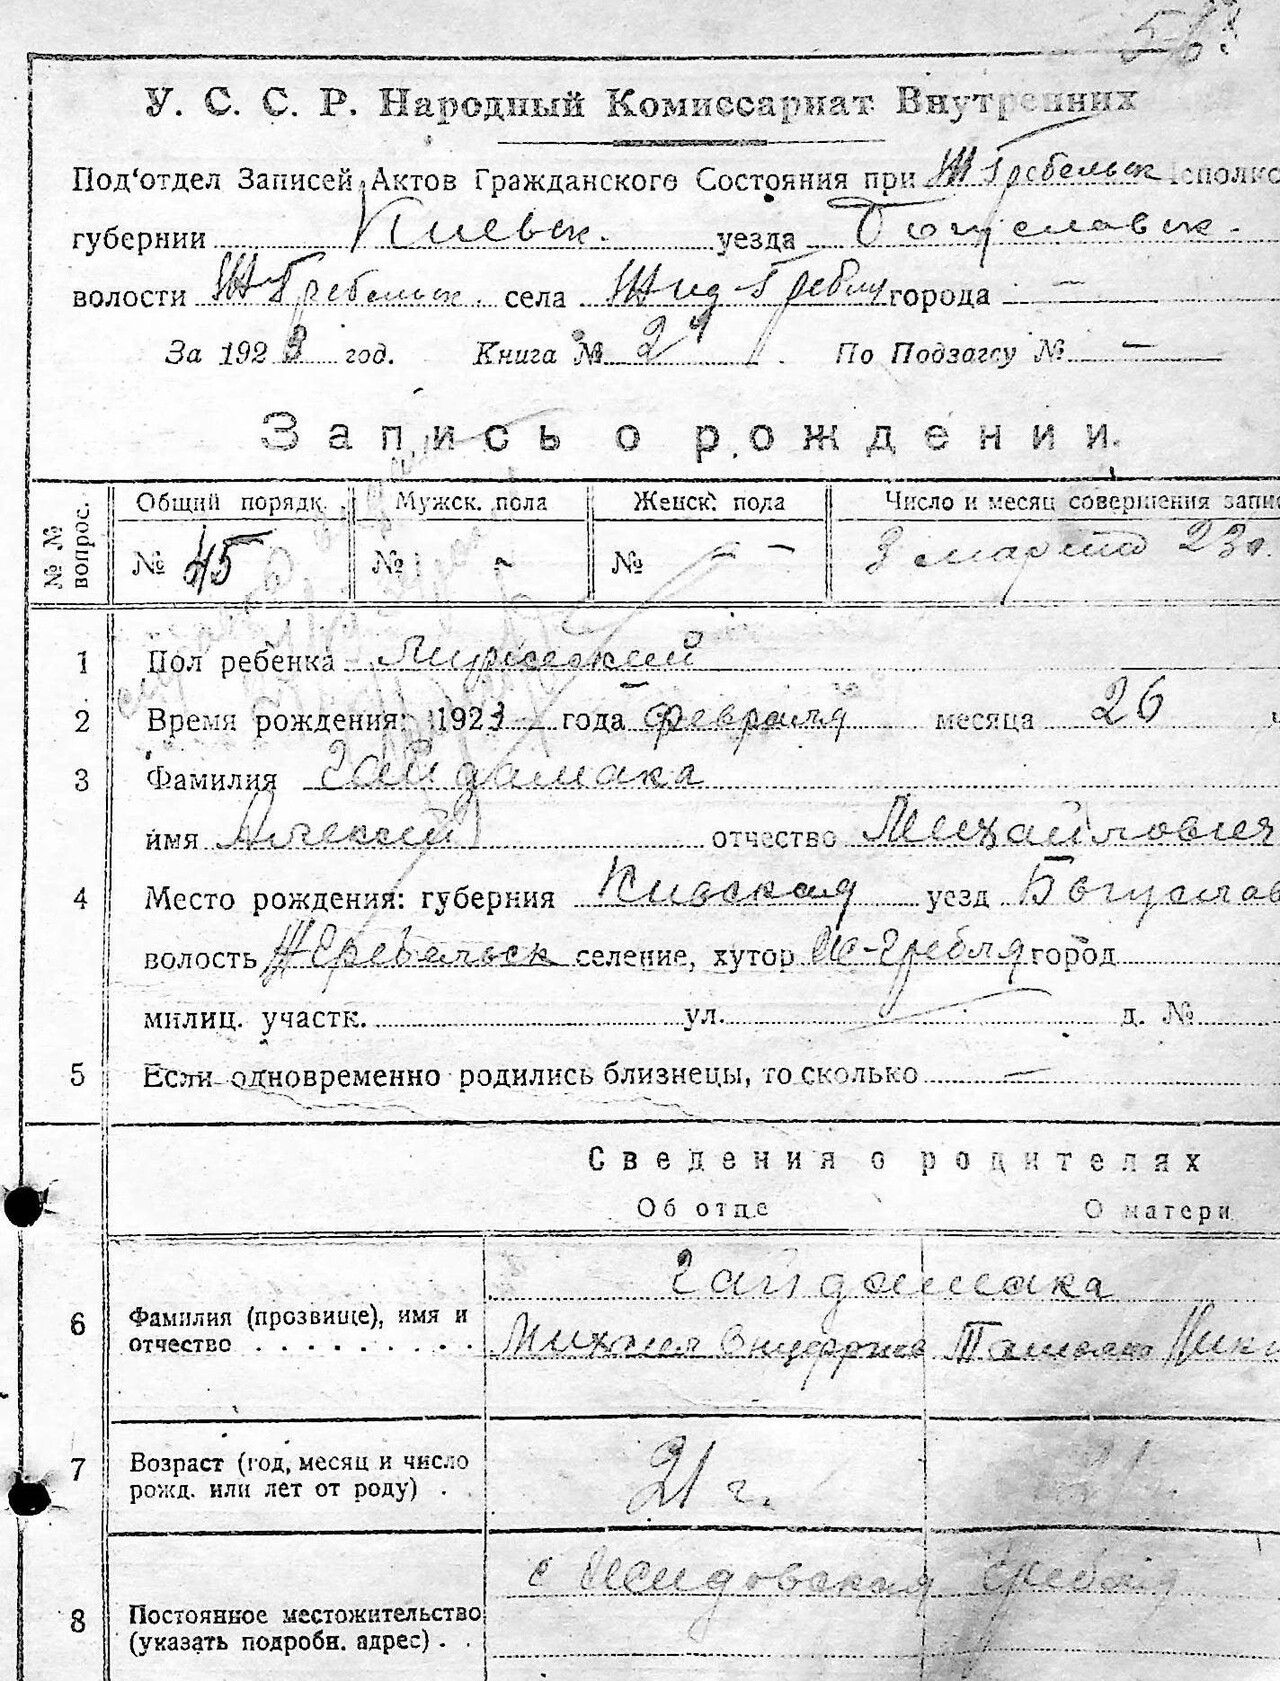 У. С. С. Р. Народный Комиссариат Внутренних
Под‘отдел Записей Актов Гражданского Состояния при Ж Гребельск Исполко
губернии Киевск. уезда Богуславск.
волости Ж Гребельск. села Жид Гребли города —
За 1923 год. Книга № 2 По Подзагсу № —
Запись о рождении.
№ № вопрос. Общий порядк. Мужск. пола Женск. пола Число и месяц совершения запис
№ 45 № - № - 3 марта 23г.
1 Пол ребенка Мужеский
2 Время рождения: 1923 года февраля месяца 26
3 Фамилия Гайдамака
имя Алексий отчество Михайлович
4 Место рождения: губерния Киевская уезд Богуслав
волость ЖГребельск селение, хутор Ж-Гребля город
милиц. участк. ул. д. №
5 Если одновременно родились близнецы, то сколько —
Сведения о родителях
Об отце О матери
Гайдамака
6 Фамилия (прозвище), имя и
отчество Михаил Онуфриев
7 Возраст (год, месяц и число
рожд. или лет от роду) 21 г. 21
с Жидовская Гребля
8 Постоянное местожительство
(указать подробн. адрес)